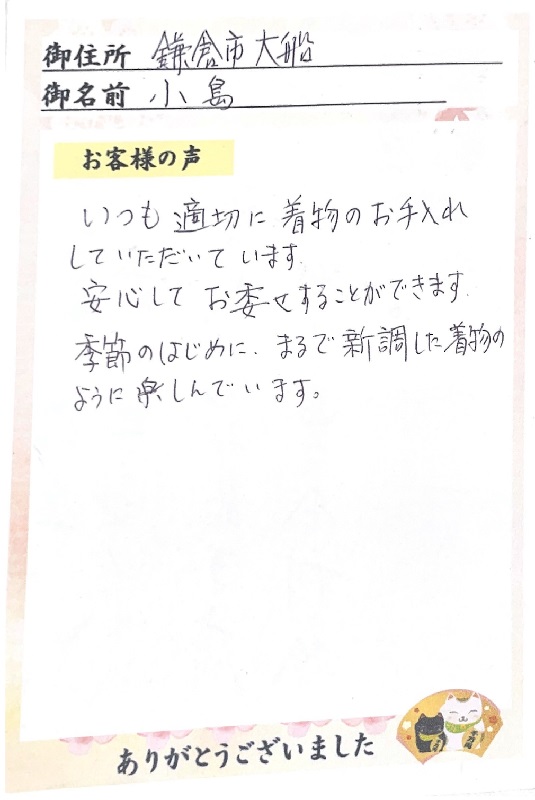 御住所 鎌倉市大船
御名前 小島
お客様の声
いつも適切に着物のお手入れ
していただいています.
安心してお委せすることができます.
季節のはじめに、まるで新調した着物の
ように楽しんでいます。
ありがとうございました